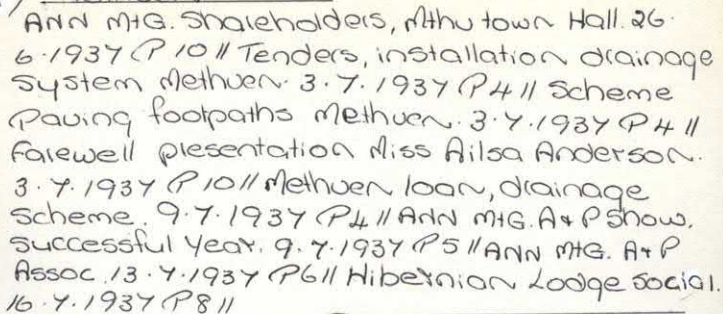 ANN MtG. Shareholders, Mthv town Hall. 26.
6.1937 P 10 // Tenders, installation drainage
System Methven. 3.7.1937 P4 // Scheme
Paving footpaths Methven. 3.7.1937 P4 //
Farewell presentation Miss Ailsa Anderson.
3.7.1937 P10 // Methven loan, drainage
Scheme. 9.7.1937 P4 // ANN MtG. A+P Show.
Successful Year. 9.7.1937 P5 // ANN MtG. A+P
Assoc. 13.7.1937 P6 // Hibernian Lodge Social.
16.7.1937 P8 //